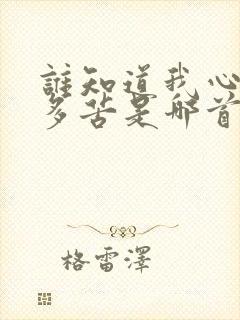 誰知道我心
多苦是那首
格雷澤